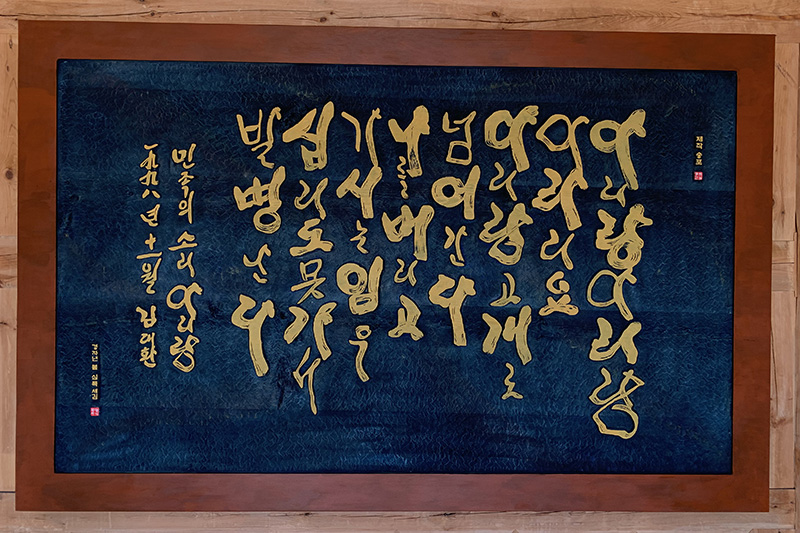 제작 송포
아리랑아리랑
아라리요
아리랑고개로
넘어간다
나를버리고
가시는임은
십리도못가서
발병난다
민족의 소리 아리랑
一九九八년 十一월 김대환
경자년 봄 심목새김